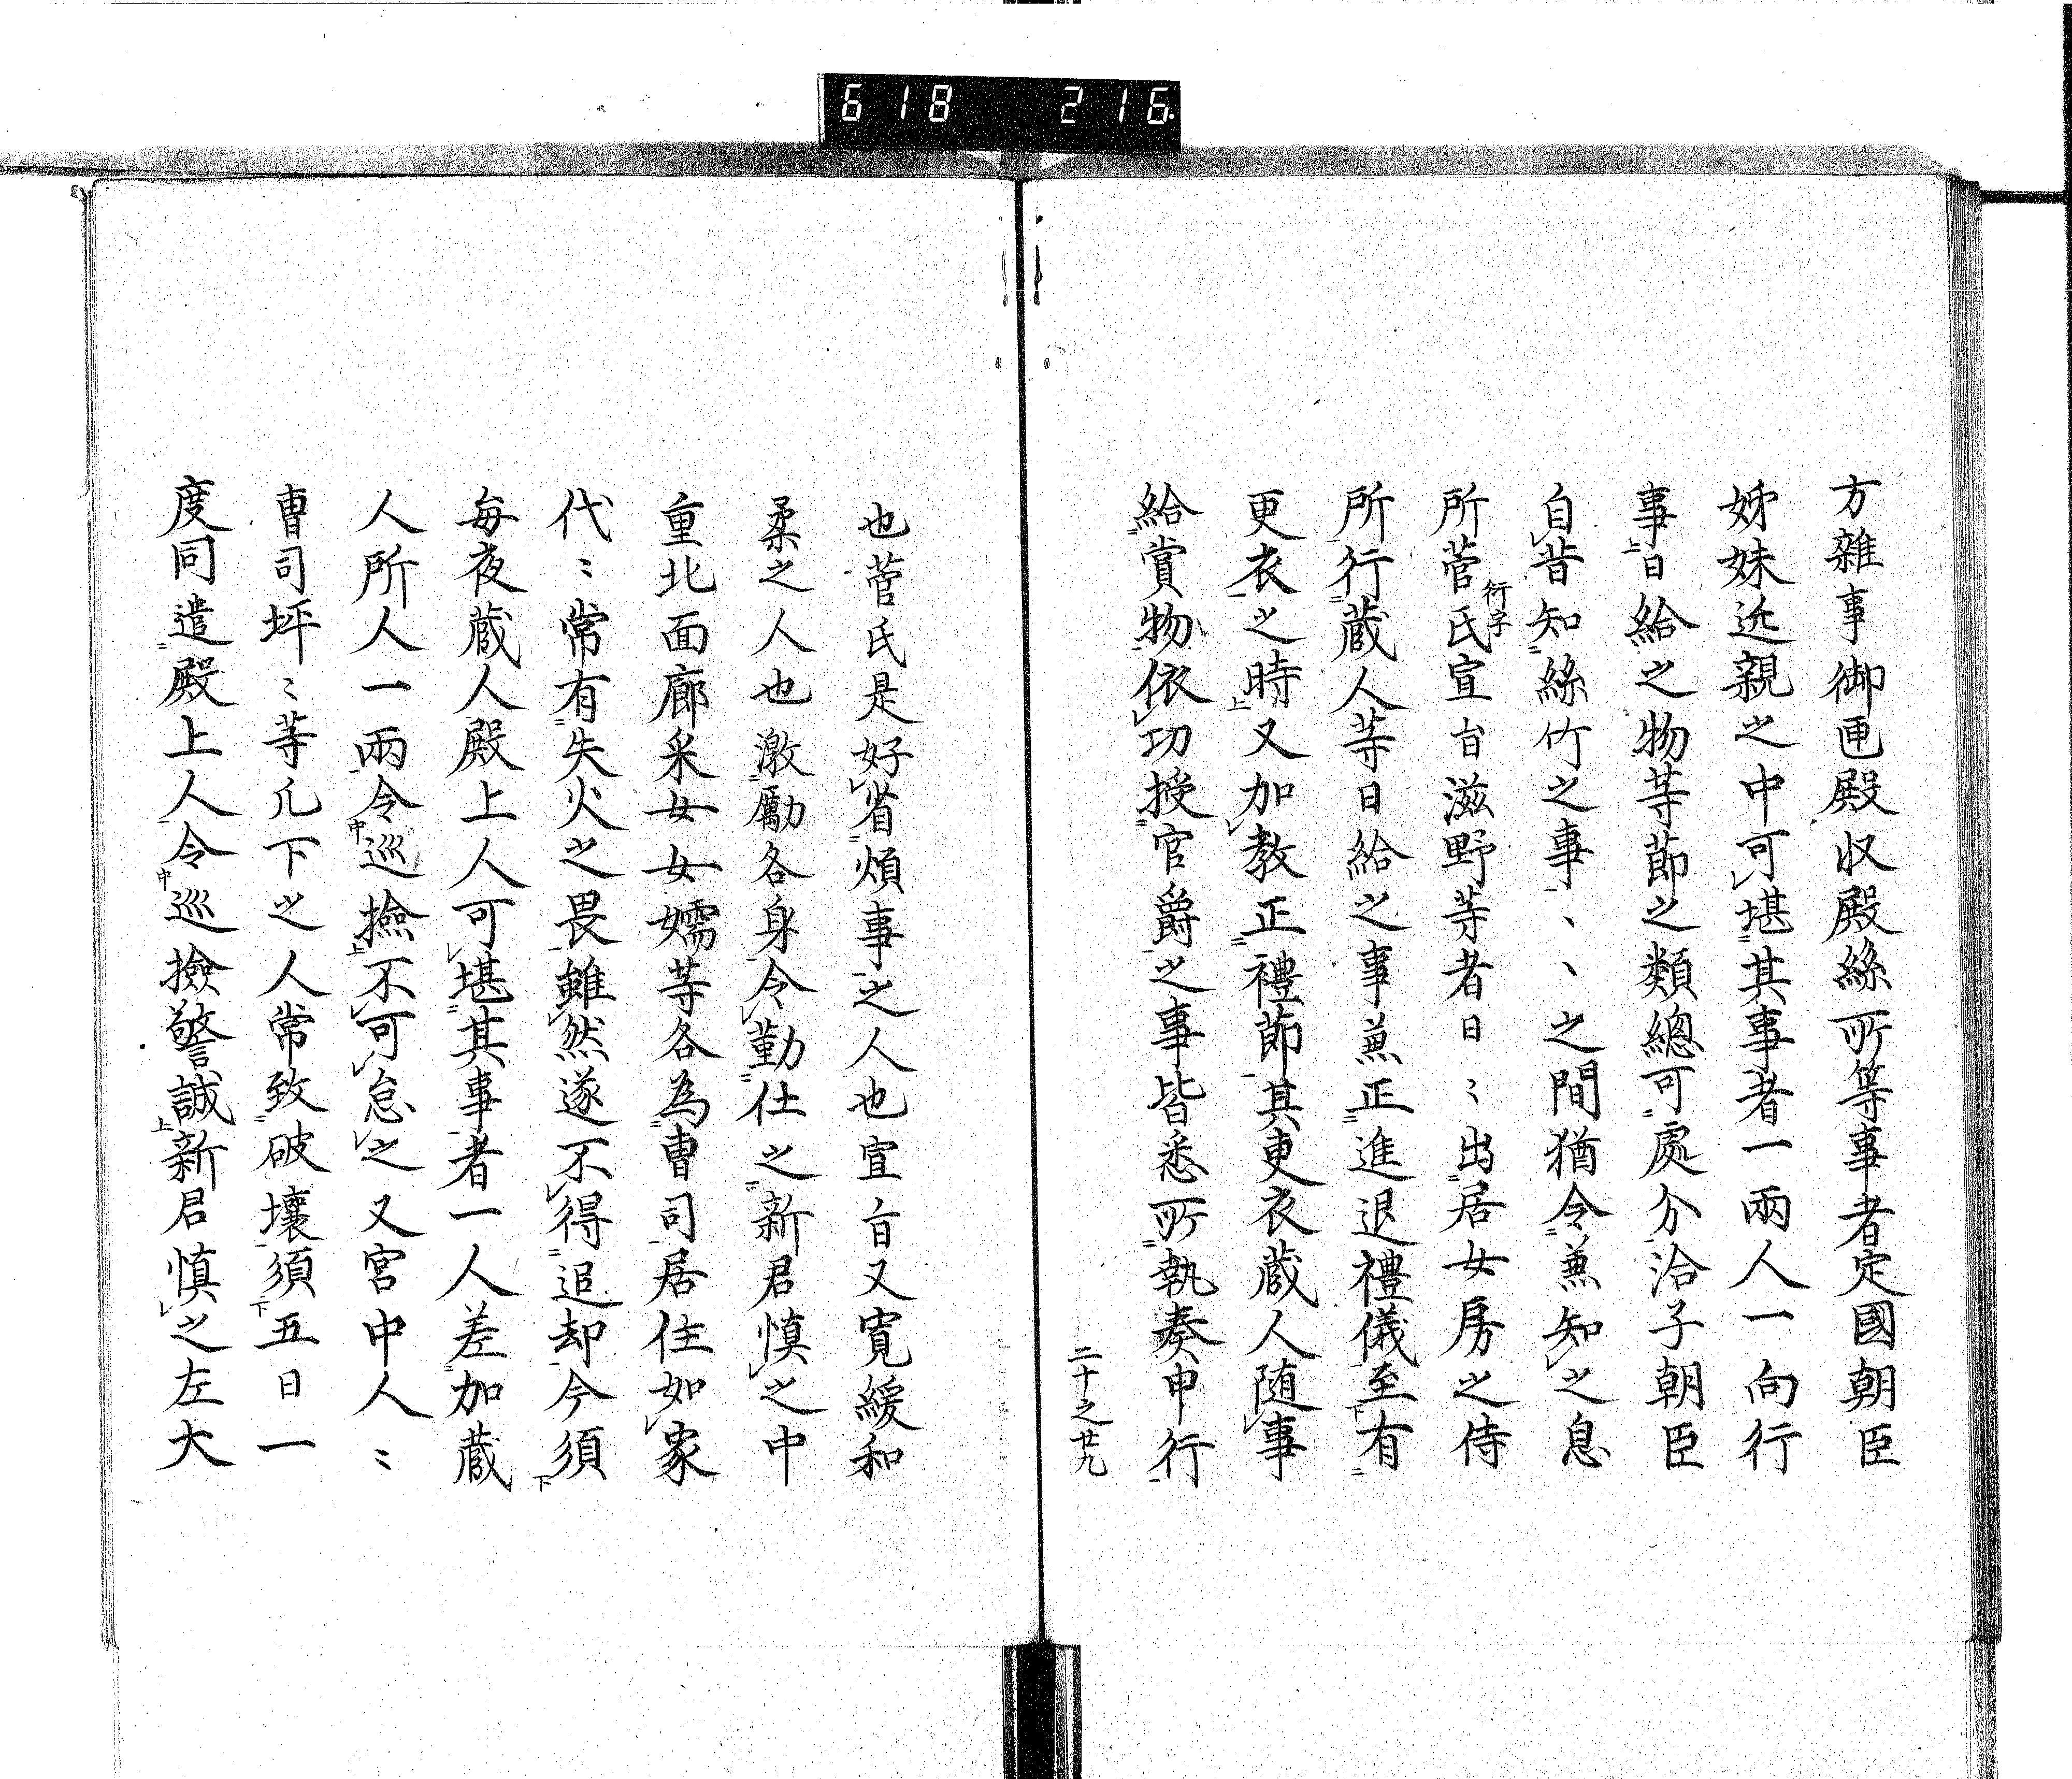 618 216
方雜事御匣殿収殿絲所等事者定國朝臣
姉妹近親之中可堪其事者一兩人一向行
事日給之物等節之類總可處分洽子朝臣
自昔知絲竹之事、、之間猶令兼知之息
所菅氏宣旨滋野等者日〻出居女房之侍
衍字
所行蔵人等日給之事兼正進退禮儀至有
更衣之時又加教正禮節其更衣蔵人随事
給賞物依功授官爵之事皆悉所執奏申行
二十之廿九
也菅氏是好省煩事之人也宣旨又寛緩和
柔之人也激勵各身令勤仕之新君慎之中
重北面廊采女女嬬等各為曹司居住如家
代〻常有失火之畏雖然遂不得追却今須
毎夜蔵人殿上人可堪其事者一人差加蔵
人所人一兩令巡撿不可怠之又宮中人〻
曹司坪〻等凢下之人常致破壞須五日一
度同遣殿上人令巡撿警誡新君慎之左大